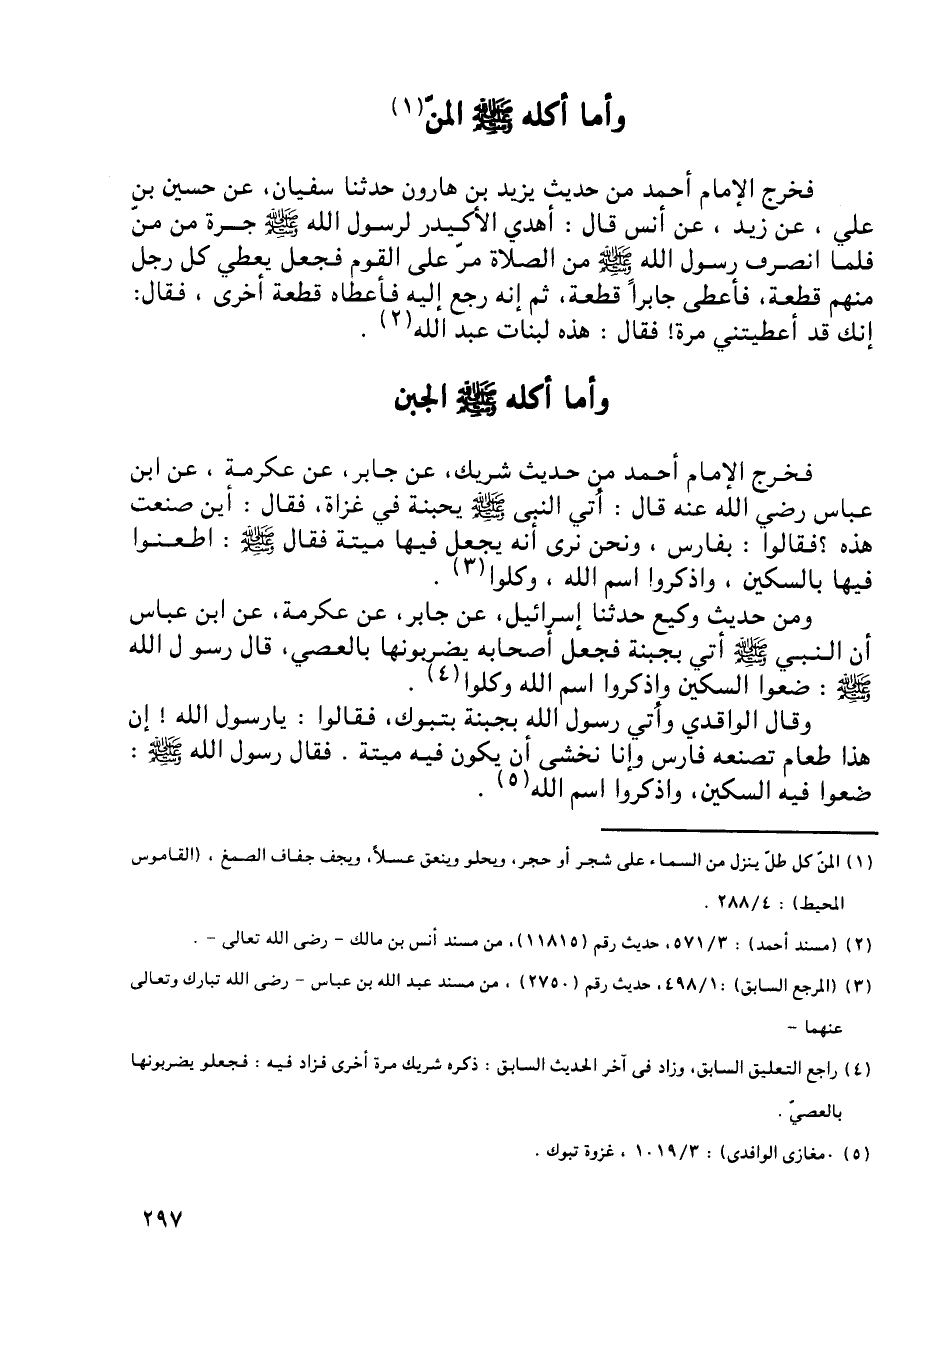 وأما أكله ﷺ المنّ(١)
فخرج الإمام أحمد من حديث يزيد بن هارون حدثنا سفيان، عن حسين بن
علي ، عن زيد ، عن أنس قال : أهدي الأكيدر لرسول الله ﷺ جرة من منّ
فلما انصرف رسول الله ﷺ من الصلاة مرّ على القوم فجعل يعطي كل رجل
منهم قطعة، فأعطى جابراً قطعة، ثم إنه رجع إليه فأعطاه قطعة أخرى ، فقال:
إنك قد أعطيتني مرة! فقال : هذه لبنات عبد الله(٢) .
وأما أكله ﷺ الجبن
فخرج الإمام أحمد من حديث شريك، عن جابر، عن عكرمة ، عن ابن
عباس رضي الله عنه قال : أُتي النبى ﷺ يحبنة في غزاة، فقال : أين صنعت
هذه ؟فقالوا : بفارس ، ونحن نرى أنه يجعل فيها ميتة فقال ﷺ : اطعنوا
فيها بالسكين ، واذكروا اسم الله ، وكلوا(٣) .
ومن حديث وكيع حدثنا إسرائيل، عن جابر، عن عكرمة، عن ابن عباس
أن النبي ﷺ أتي بجبنة فجعل أصحابه يضربونها بالعصي، قال رسو ل الله
ﷺ : ضعوا السكين واذكروا اسم الله وكلوا(٤) .
وقال الواقدي وأُتي رسول الله بجبنة بتبوك، فقالوا : يارسول الله ! إن
هذا طعام تصنعه فارس وإنا نخشى أن يكون فيه ميتة . فقال رسول الله ﷺ :
ضعوا فيه السكين، واذكروا اسم الله(٥) .
(١) المنّ كل طلّ ينزل من السماء على شجر أو حجر، ويحلو وينعق عسلاً، ويجف جفاف الصمغ ، (القاموس
المحيط) : ٢٨٨/٤ .
(٢) (مسند أحمد) : ٥٧١/٣، حديث رقم (١١٨١٥)، من مسند أنس بن مالك – رضي الله تعالى – .
(٣) (المرجع السابق) :٤٩٨/١، حديث رقم (٢٧٥٠) ، من مسند عبد الله بن عباس – رضي الله تبارك وتعالى
عنهما –
(٤) راجع التعليق السابق، وزاد فى آخر الحديث السابق : ذكره شريك مرة أخرى فزاد فيه : فجعلو يضربونها
بالعصيّ .
(٥) ٠مغازى الوافدى) : ١٠١٩/٣ ، غزوة تبوك .
٢٩٧